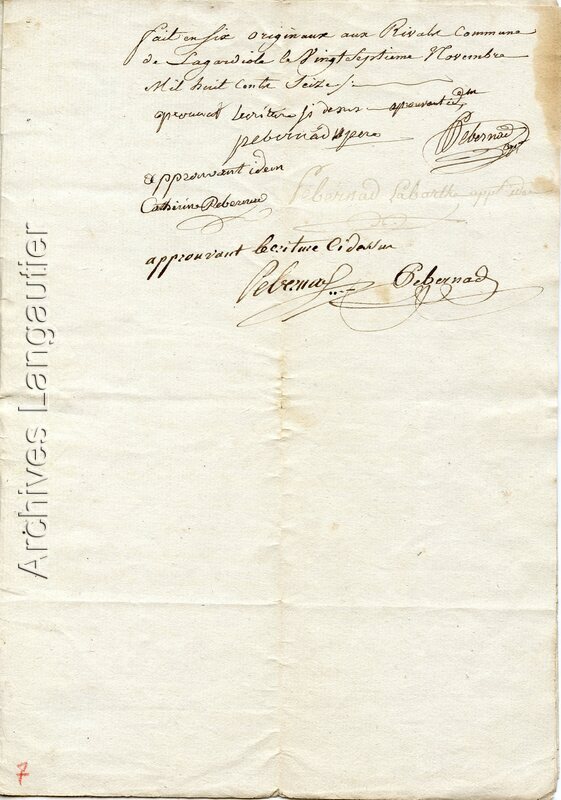 fait en Six originaux aux Rivals Commune
de Lagardiole le Vingt Septieme Novembre
Mil huit Cents Seize
aprouvat lecriture si desus aprouvant idem
pebernad pere Pebernad
approuvant idem
Catherine Pebernad Pebernad Labarthe appt idem
approuvant lecriture Cidessu
Pebernad Pebernad
Archives Langautier
7